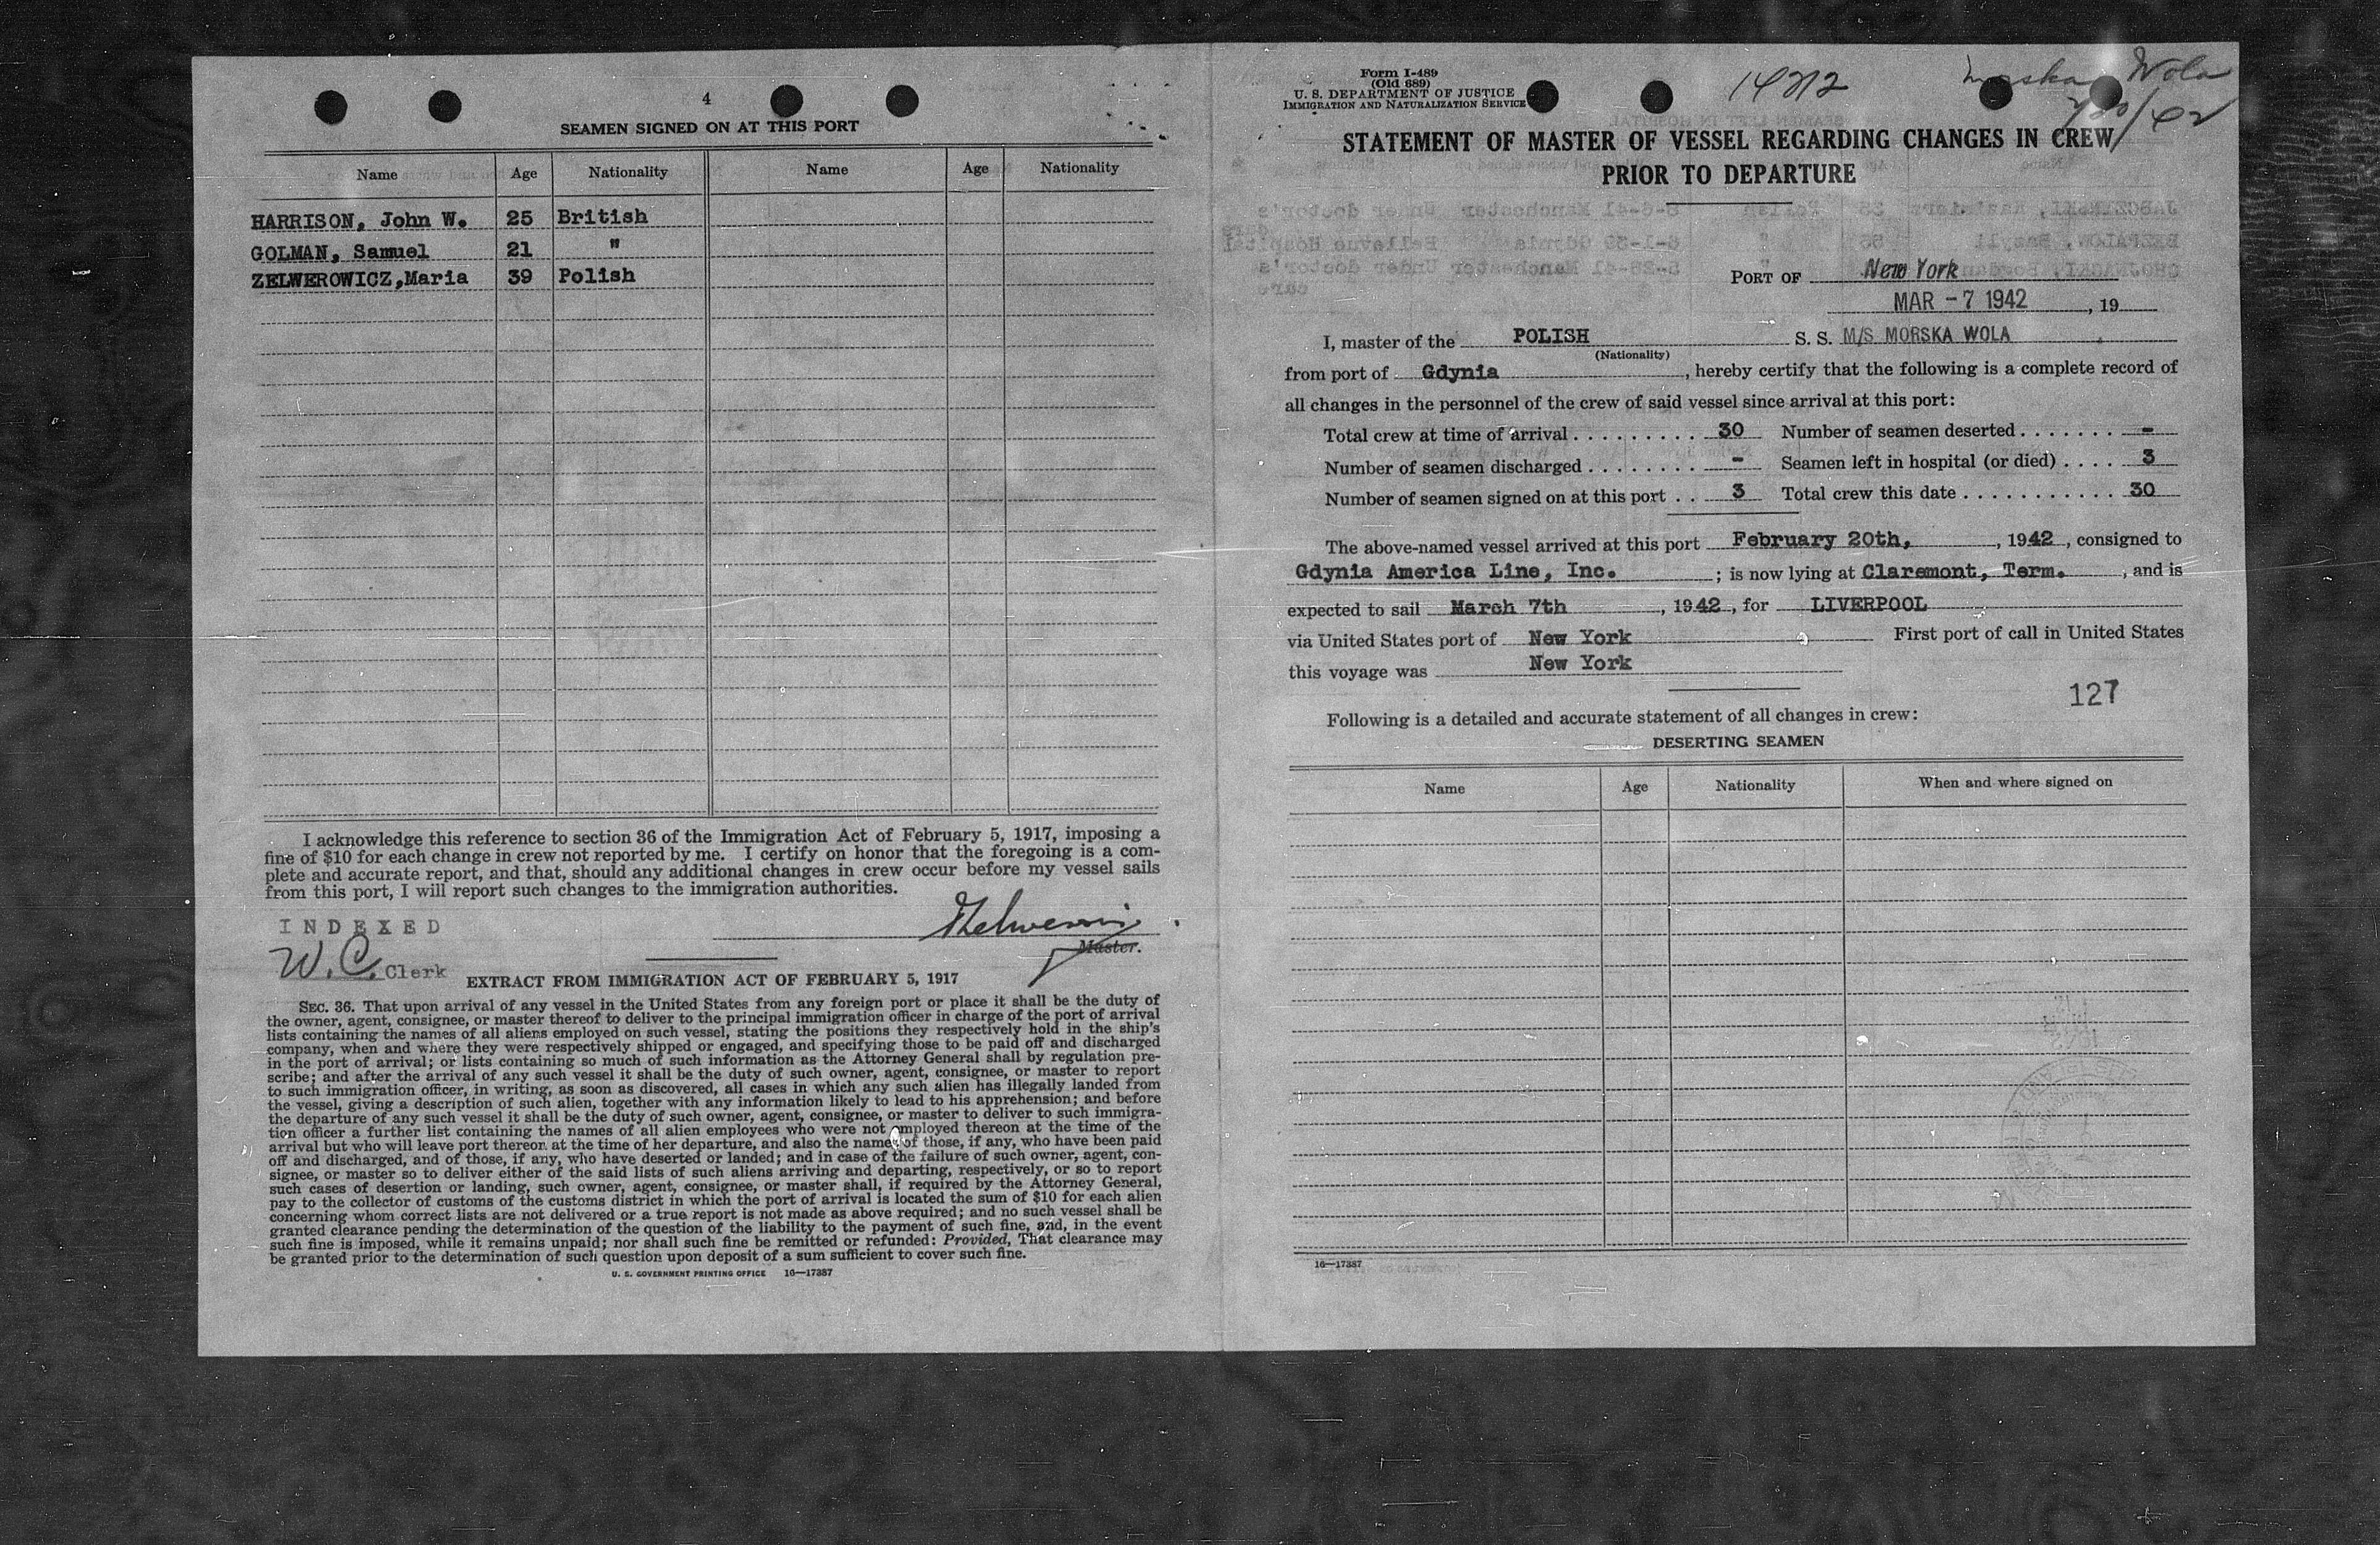 4
SEAMEN SIGNED ON AT THIS PORT
Name Age Nationality Name Age Nationality
HARRISON, John W. 25 British
GOLMAN, Samuel 21 "
ZELWEROWICZ,Maria 39 Polish
I acknowledge this reference to section 36 of the Immigration Act of February 5, 1917, imposing a
fine of $10 for each change in crew not reported by me. I certify on honor that the foregoing is a com-
plete and accurate report, and that, should any additional changes in crew occur before my vessel sails
from this port, I will report such changes to the immigration authorities.
INDEXED
W. C. Clerk
Master.
EXTRACT FROM IMMIGRATION ACT OF FEBRUARY 5, 1917
SEC. 36. That upon arrival of any vessel in the United States from any foreign port or place it shall be the duty of
the owner, agent, consignee, or master thereof to deliver to the principal immigration officer in charge of the port of arrival
lists containing the names of all aliens employed on such vessel, stating the positions they respectively hold in the ship's
company, when and where they were respectively shipped or engaged, and specifying those to be paid off and discharged
in the port of arrival; or lists containing so much of such information as the Attorney General shall by regulation pre-
scribe; and after the arrival of any such vessel it shall be the duty of such owner, agent, consignee, or master to report
to such immigration officer, in writing, as soon as discovered, all cases in which any such alien has illegally landed from
the vessel, giving a description of such alien, together with any information likely to lead to his apprehension; and before
the departure of any such vessel it shall be the duty of such owner, agent, consignee, or master to deliver to such immigra-
tion officer a further list containing the names of all alien employees who were not employed thereon at the time of the
arrival but who will leave port thereon at the time of her departure, and also the names of those, if any, who have been paid
off and discharged, and of those, if any, who have deserted or landed; and in case of the failure of such owner, agent, con-
signee, or master so to deliver either of the said lists of such aliens arriving and departing, respectively, or so to report
such cases of desertion or landing, such owner, agent, consignee, or master shall, if required by the Attorney General,
pay to the collector of customs of the customs district in which the port of arrival is located the sum of $10 for each alien
concerning whom correct lists are not delivered or a true report is not made as above required; and no such vessel shall be
granted clearance pending the determination of the question of the liability to the payment of such fine, and, in the event
such fine is imposed, while it remains unpaid; nor shall such fine be remitted or refunded: Provided, That clearance may
be granted prior to the determination of such question upon deposit of a sum sufficient to cover such fine.
U. S. GOVERNMENT PRINTING OFFICE 16—17387
Form I-489
(Old 689)
U. S. DEPARTMENT OF JUSTICE
IMMIGRATION AND NATURALIZATION SERVICE
14212
Wola
STATEMENT OF MASTER OF VESSEL REGARDING CHANGES IN CREW
PRIOR TO DEPARTURE
PORT OF New York
MAR -7 1942, 19
I, master of the POLISH S. S. M/S MORSKA WOLA
(Nationality)
from port of Gdynia, hereby certify that the following is a complete record of
all changes in the personnel of the crew of said vessel since arrival at this port:
Total crew at time of arrival . . . . . . . . . 30 Number of seamen deserted . . . . . . . -
Number of seamen discharged . . . . . . . . - Seamen left in hospital (or died) . . . . 3
Number of seamen signed on at this port . . 3 Total crew this date . . . . . . . . . . . 30
The above-named vessel arrived at this port February 20th, , 1942, consigned to
Gdynia America Line, Inc. ; is now lying at Claremont, Term. , and is
expected to sail March 7th , 1942, for LIVERPOOL
via United States port of New York First port of call in United States
this voyage was New York
127
Following is a detailed and accurate statement of all changes in crew:
DESERTING SEAMEN
Name Age Nationality When and where signed on
16—17387